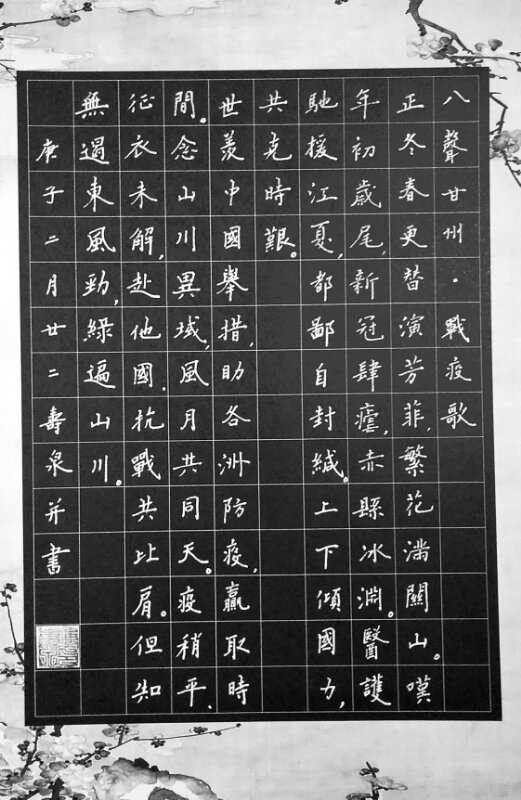 八聲甘州·戰疫歌
正冬春更替演芳菲,繁花滿關山。嘆
年初歲尾,新冠肆瘧,赤縣冰淵。醫護
馳援江夏,都鄙自封緘。上下傾國力,
共克時艱。
世羨中國舉措,助各洲防疫,贏取時
間。念山川異域,風月共同天。疫稍平、
征衣未解,赴他國,抗戰共比肩。但知
無過東風勁,綠遍山川。
庚子二月廿二壽泉并書